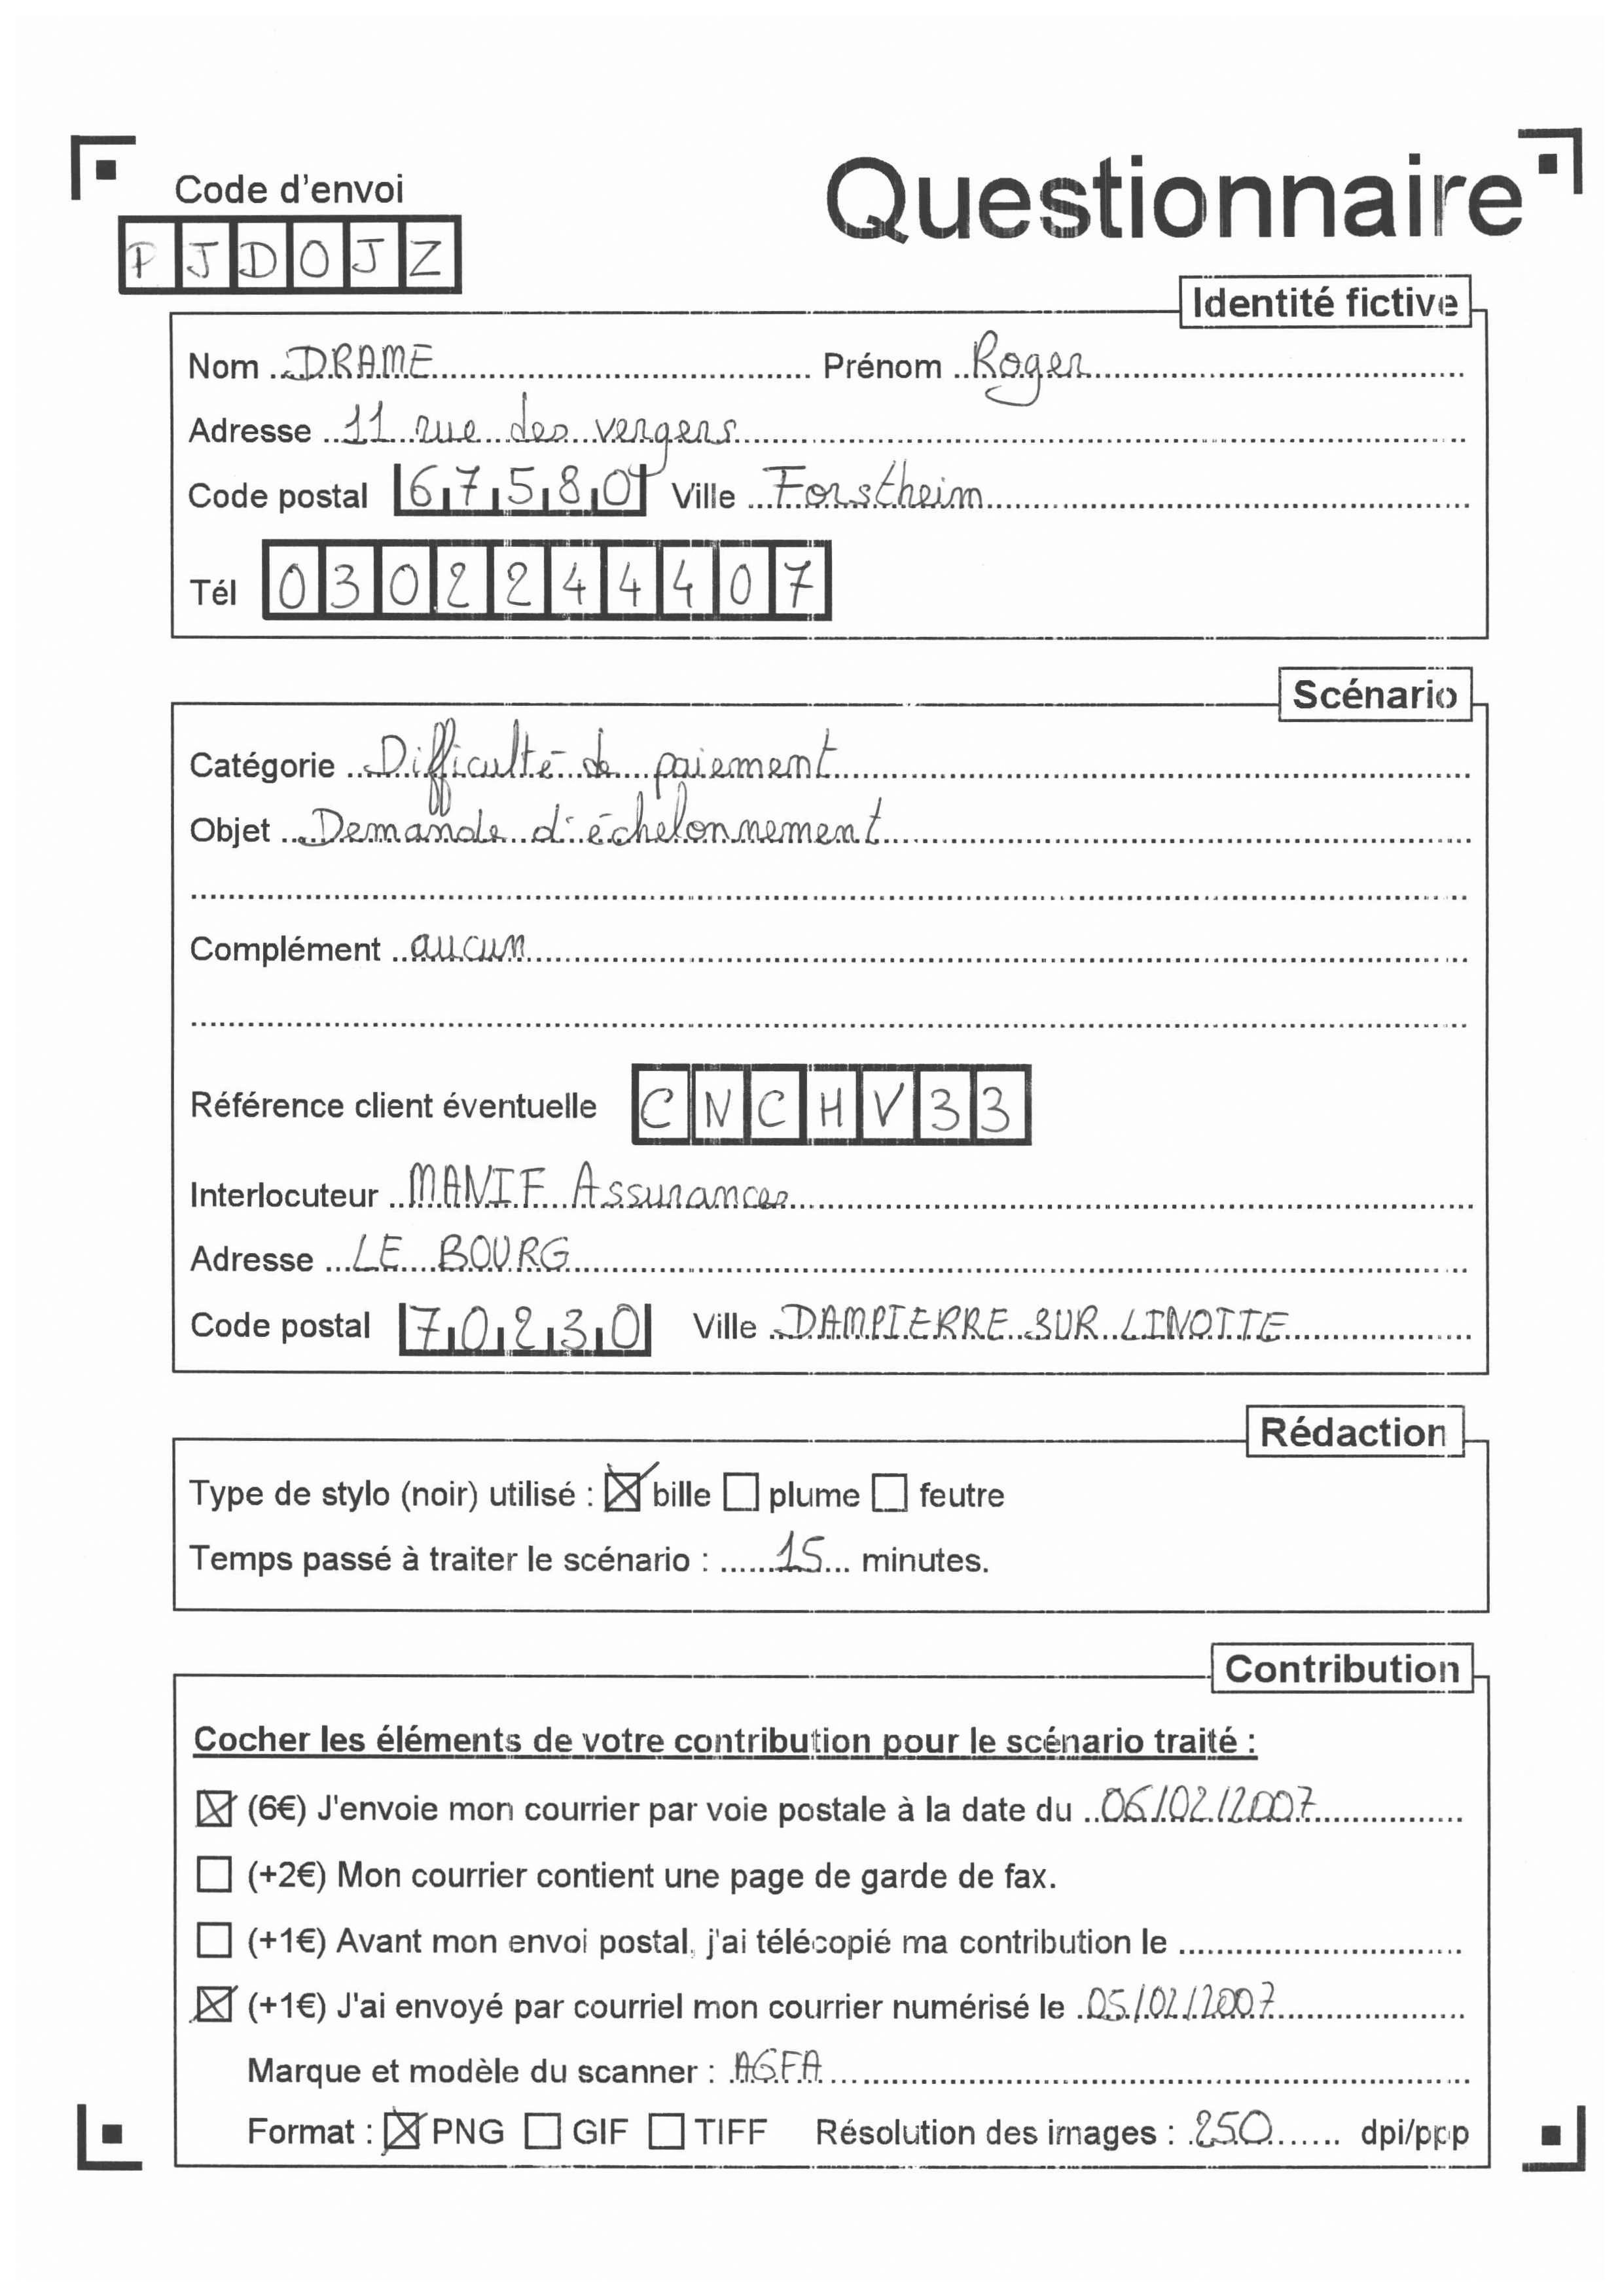 Code d'envoi
Questionnaire
PJDOJZ
Identité fictive
Nom DRAME Prénom Roger
Adresse 11 rue des vergers
Code postal 67580 Ville Forstheim
Tél 0302244407
Scénario
Catégorie Difficulté de paiement
Objet Demande d'échelonnement
Complément aucun
Référence client éventuelle CNCHV33
Interlocuteur MANIF Assurances
Adresse LE BOURG
Code postal 70230 Ville DAMPIERRE SUR LINOTTE
Rédaction
Type de stylo (noir) utilisé : ☒ bille ☐ plume ☐ feutre
Temps passé à traiter le scénario : 15 minutes.
Contribution
Cocher les éléments de votre contribution pour le scénario traité :
☒ (6€) J'envoie mon courrier par voie postale à la date du 06/02/2007
☐ (+2€) Mon courrier contient une page de garde de fax.
☐ (+1€) Avant mon envoi postal, j'ai télécopié ma contribution le
☒ (+1€) J'ai envoyé par courriel mon courrier numérisé le 05/02/2007
Marque et modèle du scanner : AGFA
Format : ☒ PNG ☐ GIF ☐ TIFF Résolution des images : 250 dpi/ppp